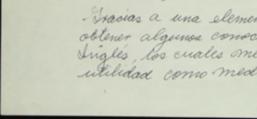 Gracias a una elemen
obtener algunos conoc
Inglés, los cuales me
utilidad como med